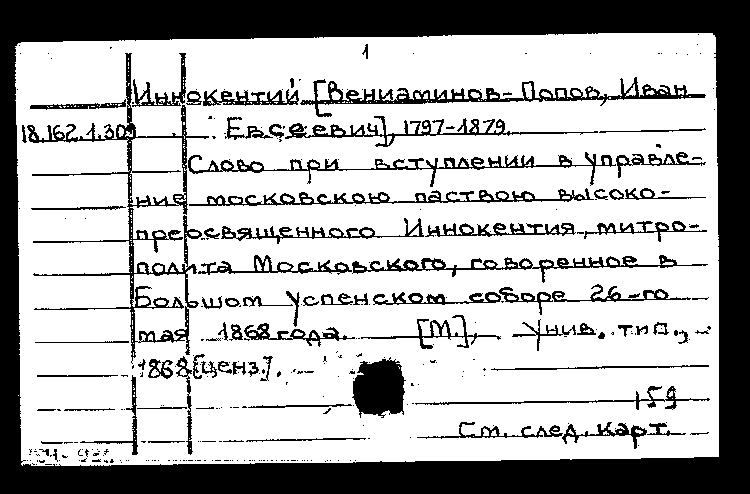 1
Иннокентий [Вениаминов-Попов, Иван
18.162.1.309 Евсеевич], 1797-1879.
Слово при вступлении в управле-
ние московскою паствою высоко-
преосвященного Иннокентия, митро-
полита Московского, говоренное в
Большом Успенском соборе 26-го
мая 1868 года. [М.], Унив. тип.,
1868 [ценз.].
159
См. след. карт.